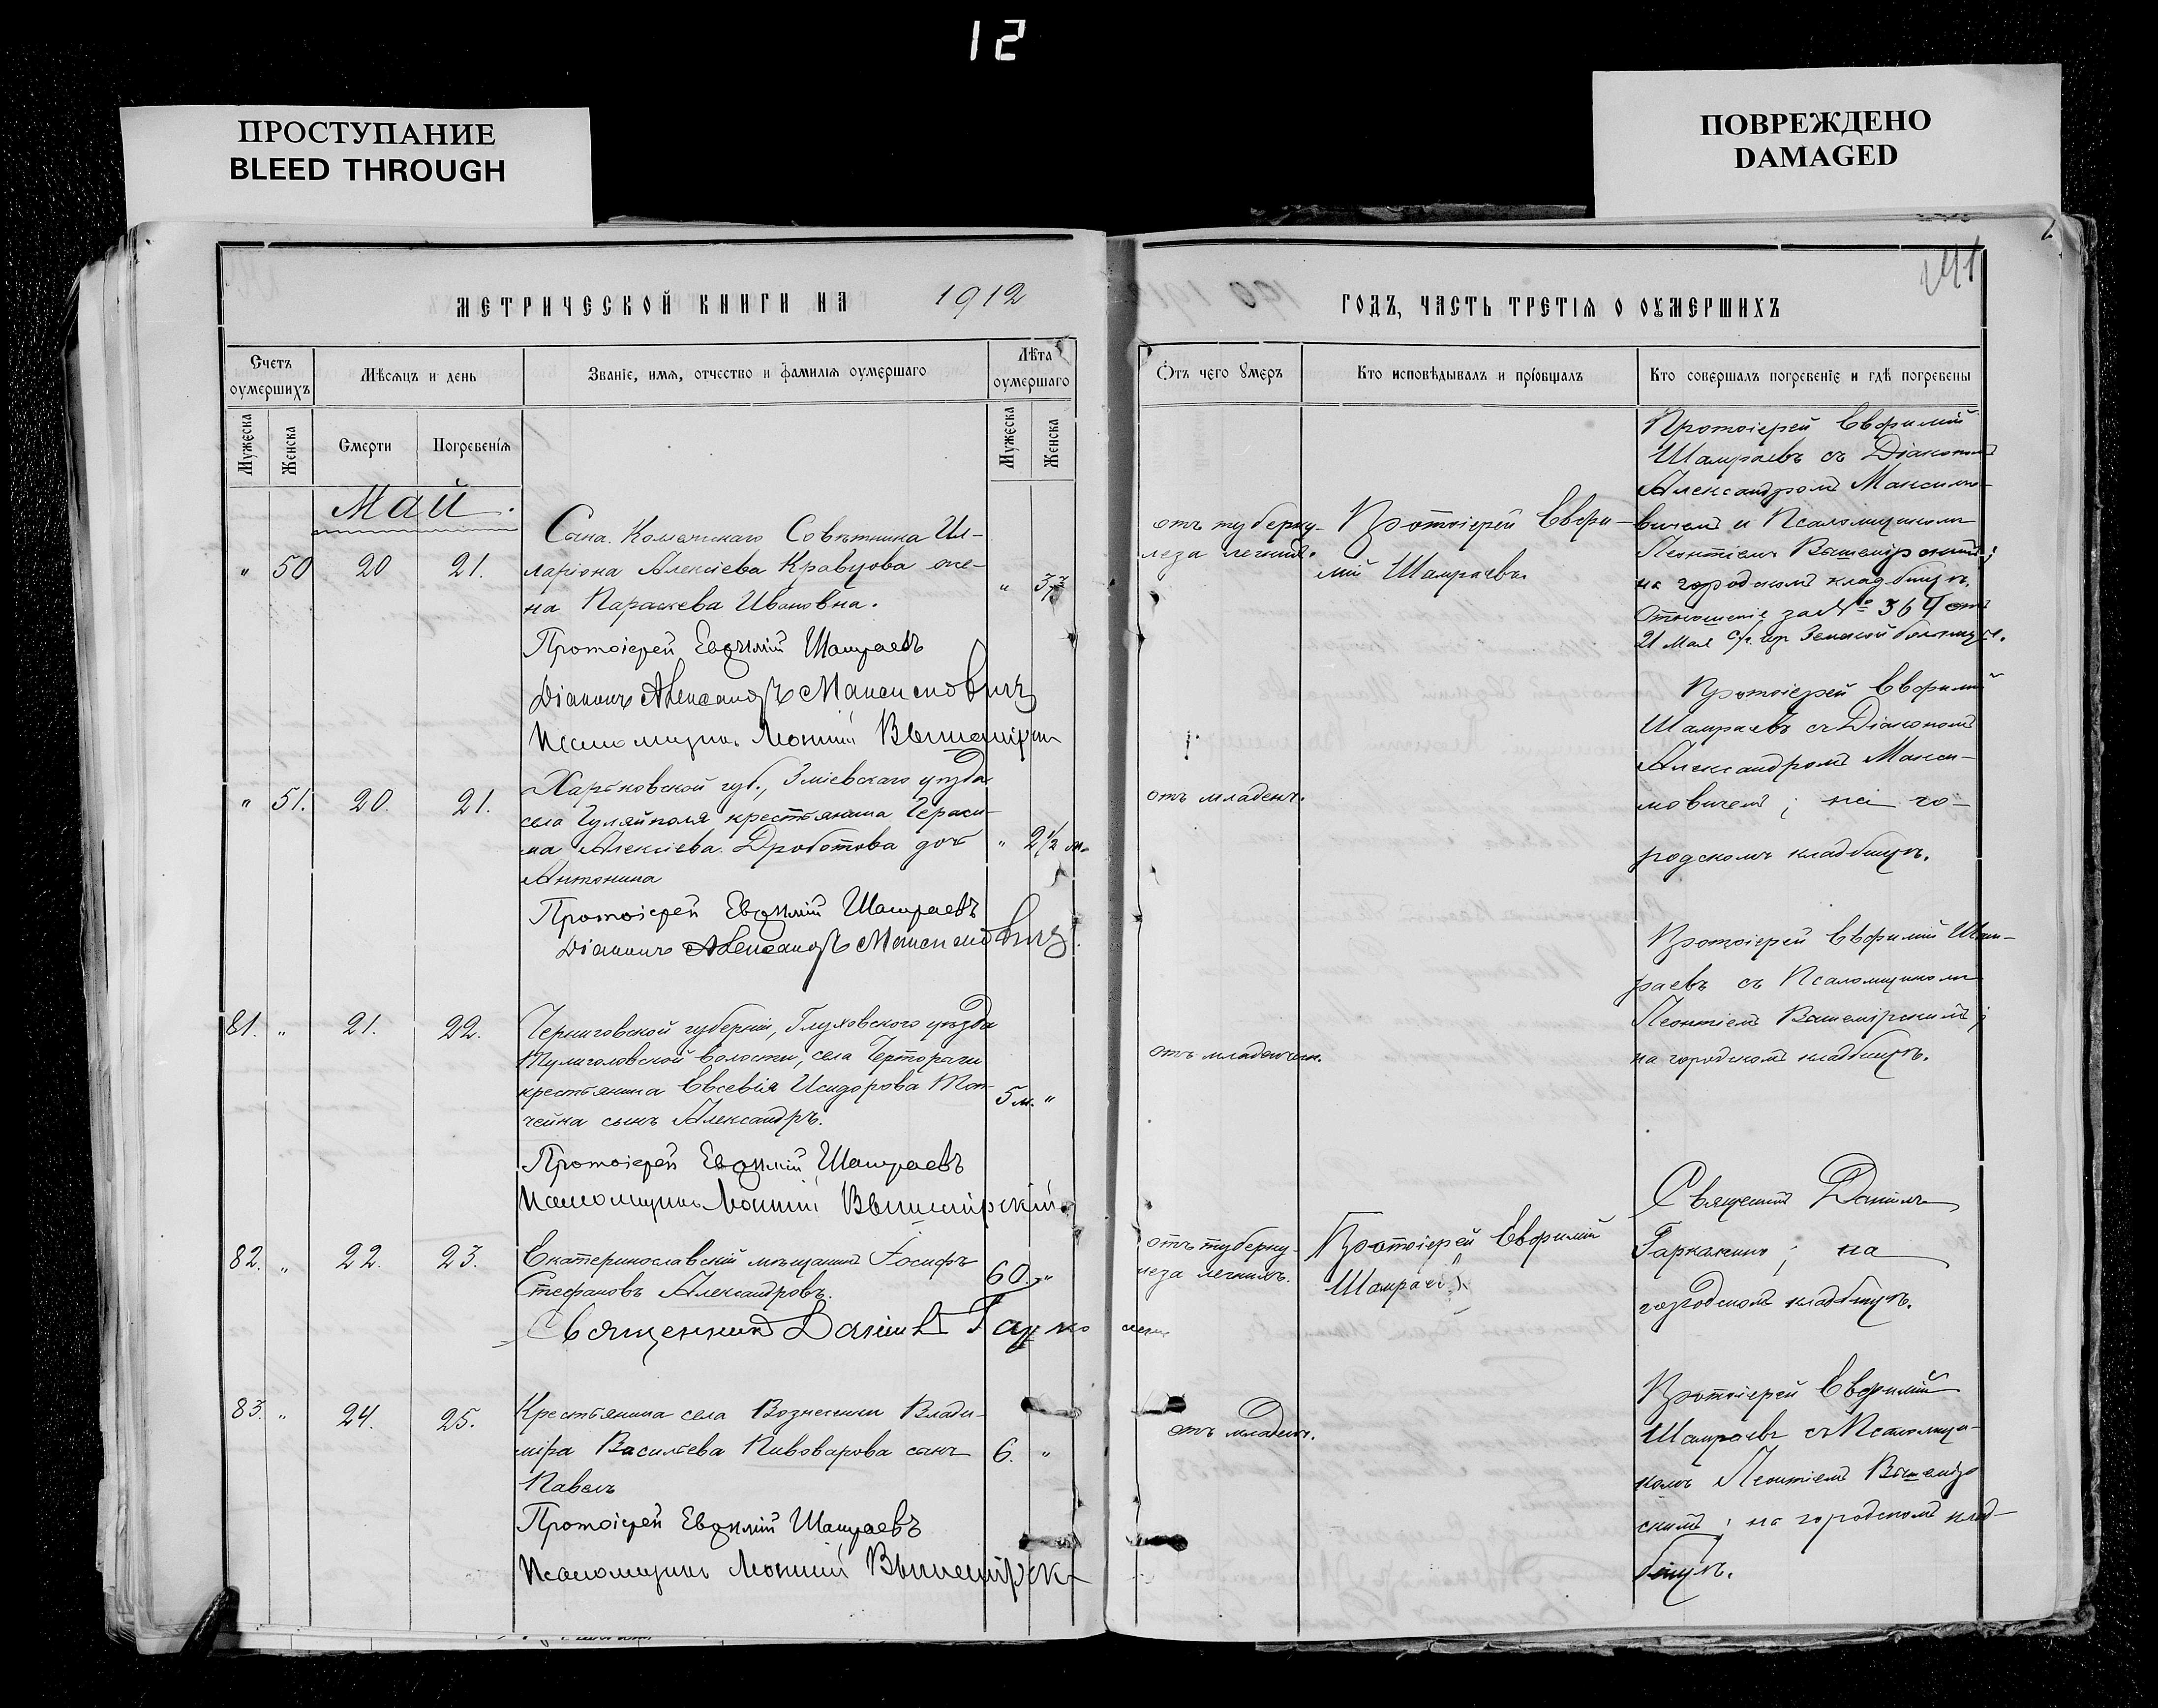 12
ПРОСТУПАНИЕ
BLEED THROUGH
ПОВРЕЖДЕНО
DAMAGED
МЕТРИЧЕСКОЙ КНИГИ НА 1912
Счетъ оумершихъ
Мѣсяцъ и день
Званіе, имя, отчество и фамилія оумершаго
Лѣта оумершаго
Мужеска
Женска
Смерти
Погребенія
Мужеска
Женска
Май.
Сына Коллежскаго Совѣтника Ил-
" 50 20 21. ларіона Алексіева Кравцова же-
на Параскева Ивановна. " 37
Протоіерей Евѳимій Шамраевъ
Діаконъ Александръ Максимовичъ
Псаломщикъ Леонтій Вышемірскій
Харьковской губ., Зміевскаго уѣзда
" 51. 20. 21. села Гуляйполя крестьянина Гераси-
ма Алексіева Дроботова дочь " 2 1/2 м.
Антонина
Протоіерей Евѳимій Шамраевъ
Діаконъ Александръ Максимовичъ
81. " 21. 22. Черниговской губерніи, Глуховского уѣзда
волости, села
крестьянина Евсевія Исидорова 5 м. "
сынъ Александръ.
Протоіерей Евѳимій Шамраевъ
Псаломщикъ Леонтій Вышемірскій
82. " 22. 23. Екатеринославскій мѣщанинъ Іосифъ
Стефановъ Александровъ. 60. "
Священникъ Даніилъ
83. " 24. 25. Крестьянина села Вознесенки Влади-
міра Васильева Пивоварова сынъ 6. "
Павелъ
Протоіерей Евѳимій Шамраевъ
Псаломщикъ Леонтій Вышемірск
ГОДЪ, ЧАСТЬ ТРЕТІЯ О ОУМЕРШИХЪ
Отъ чего умеръ
Кто исповѣдывалъ и пріобщалъ
Кто совершалъ погребеніе и гдѣ погребены
отъ туберку-
леза легкихъ.
Протоіерей Евѳи-
мій Шамраевъ
Протоіерей Евфимій
Шамраевъ съ Діакономъ
Александромъ Максимо-
вичемъ и Псаломщикомъ
Леонтіемъ Вышемірскимъ;
на городскомъ кладбищѣ.
Отношеніе за № 364 отъ
21 Мая с/г. Земской больницы.
отъ младенч.
Протоіерей Евфимій
Шамраевъ съ Діакономъ
Александромъ Макси-
мовичемъ; на го-
родскомъ кладбищѣ.
отъ младенчес.
Протоіерей Евфимій Шам-
раевъ съ Псаломщикомъ
Леонтіемъ Вышемірскимъ;
на городскомъ кладбищѣ.
отъ туберку-
леза легкихъ.
Протоіерей Евфимій
Шамраевъ
Священникъ Даніилъ
на
городскомъ кладбищѣ.
отъ младенч.
Протоіерей Евфимій
Шамраевъ съ Псаломщи-
комъ Леонтіемъ Вышемір
скимъ; на городскомъ клад-
бищѣ.